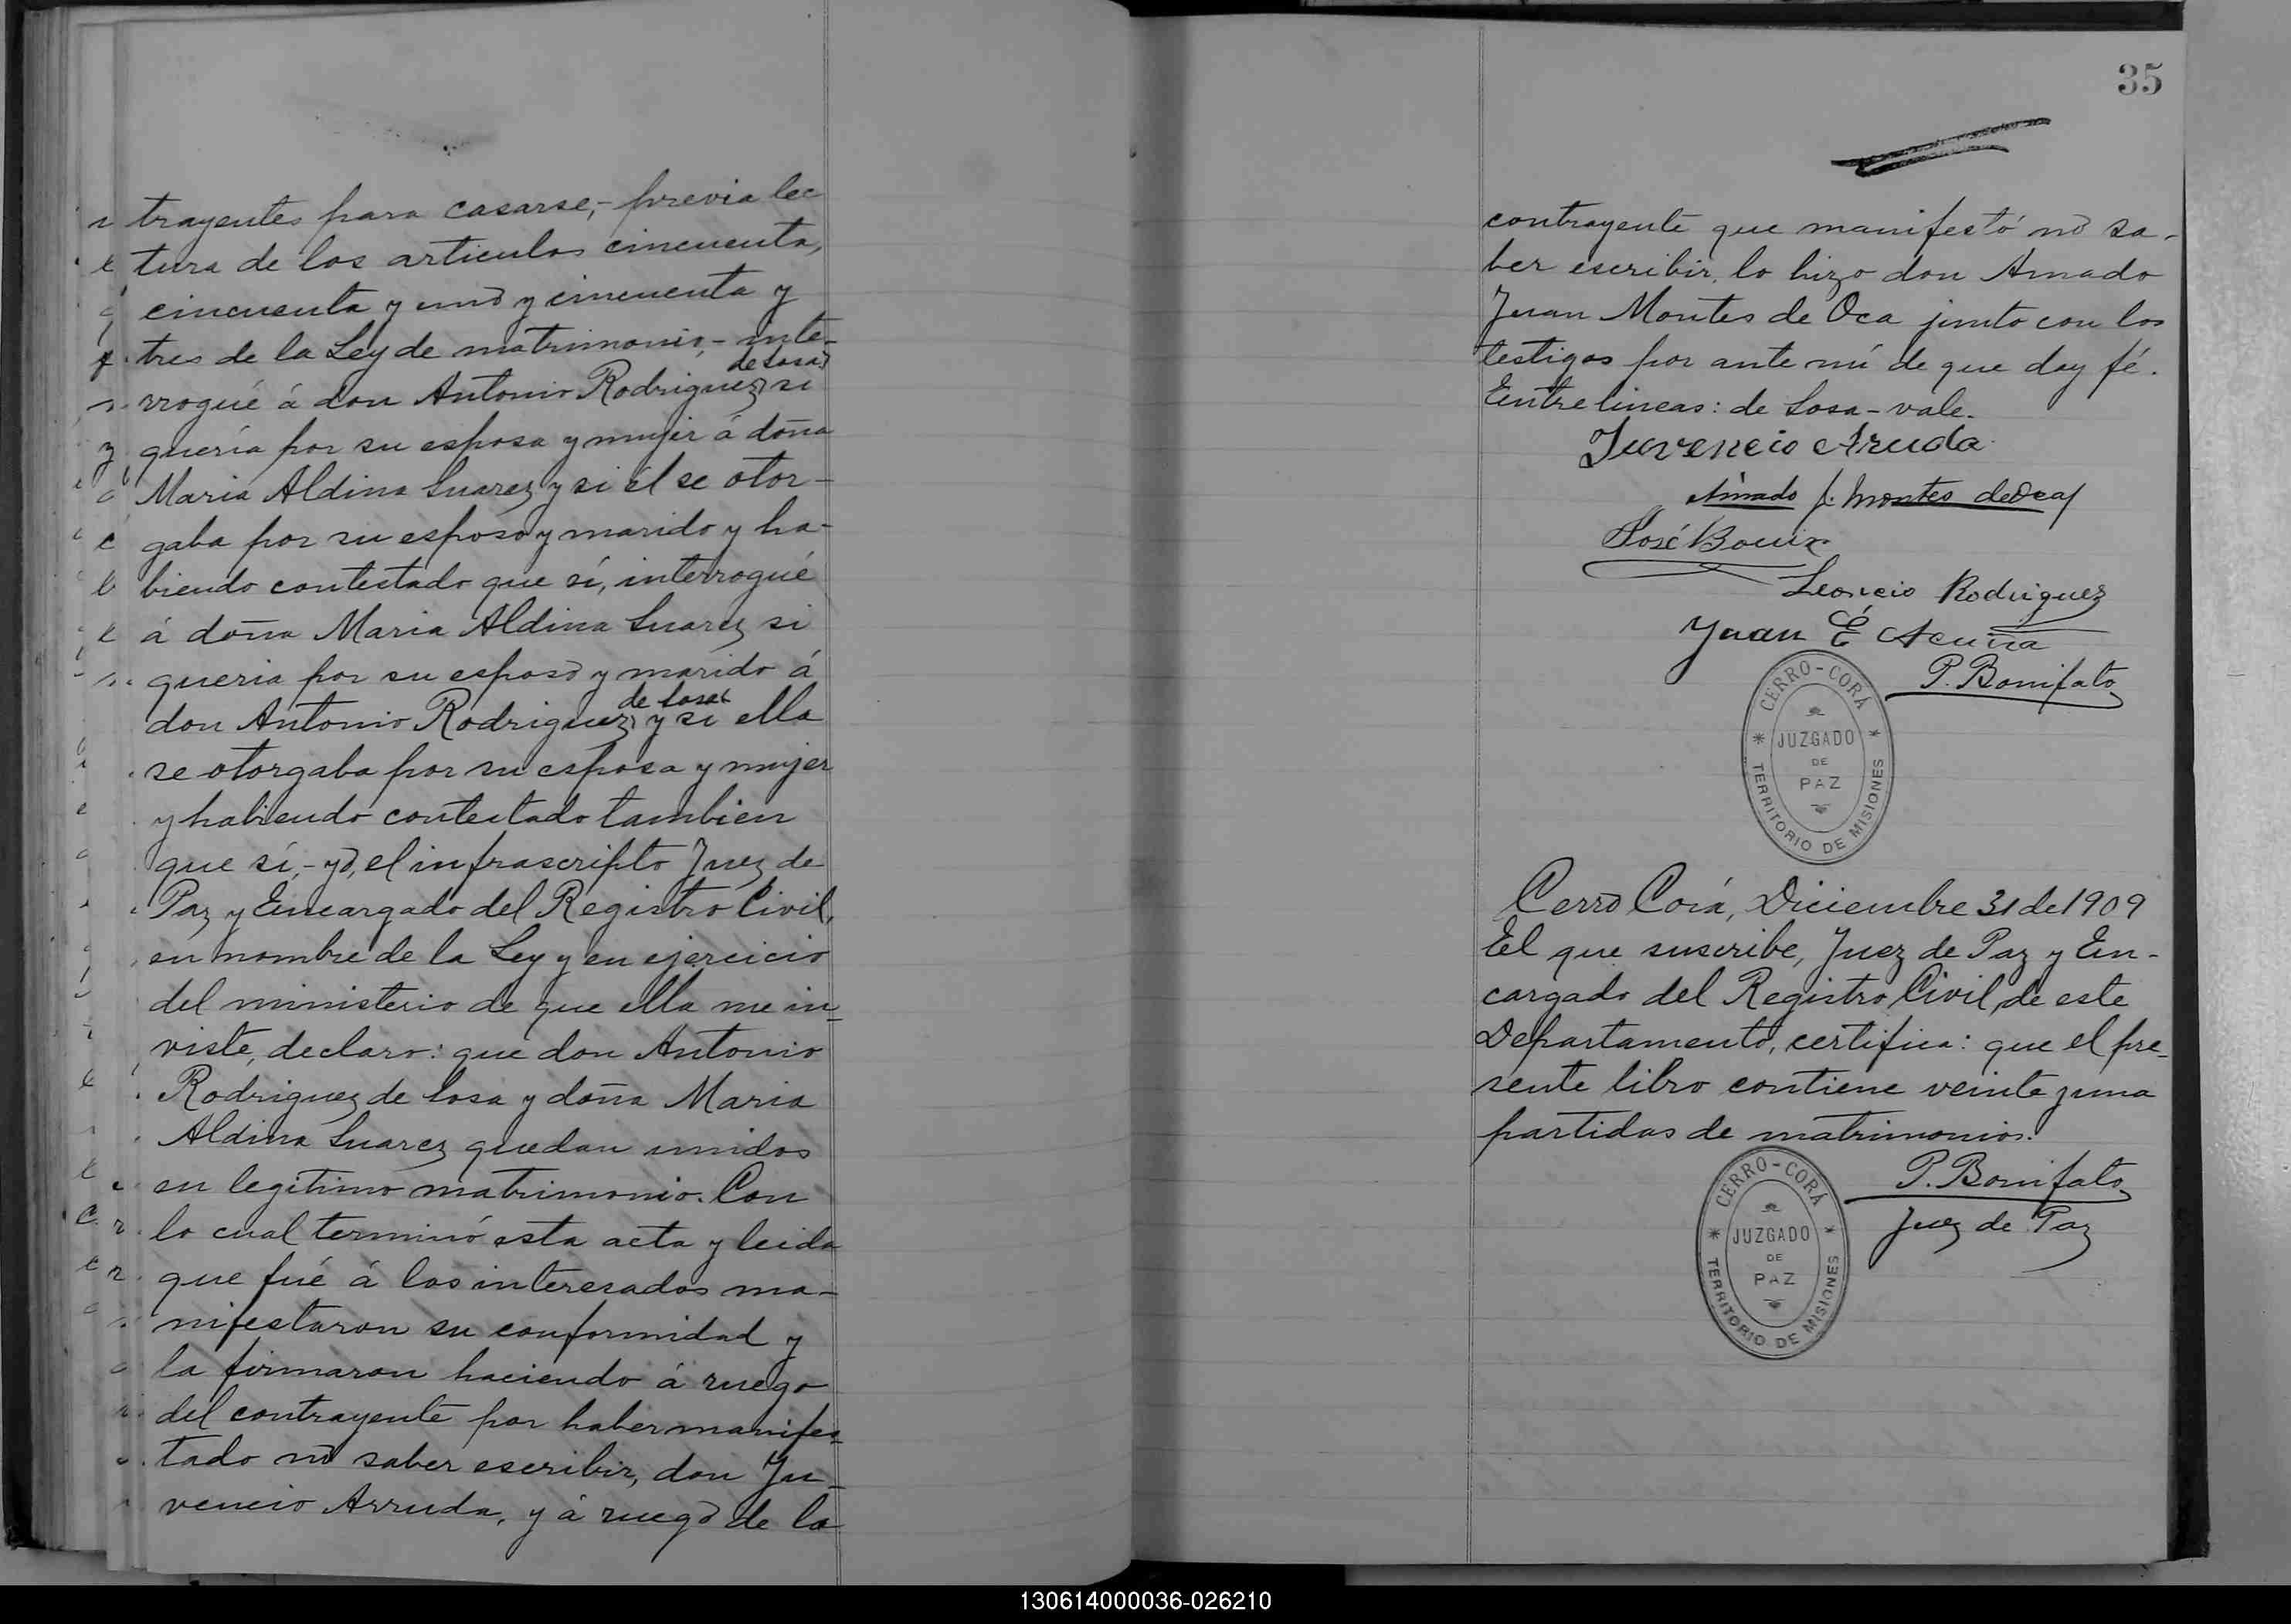 trayentes para casarse,- previa lec
tura de los articulos cincuenta,
cincuenta y uno y cincuenta y
tres de la Ley de matrimonio,- inte-
de Sosa
rrogué á don Antonio Rodriguez si
quería por su esposa y mujer á doña
Maria Aldina Suarez y si él se otor-
gaba por su esposo y marido y ha-
biendo contestado que sí, interrogué
á doña Maria Aldina Suarez si
queria por su esposo y marido á
de Sosa
don Antonio Rodriguez y si ella
se otorgaba por su esposa y mujer
y habiendo contestado tambien
que sí,- yo, el infrascripto Juez de
Paz y Encargado del Registro Civil,
en nombre de la Ley y en ejercicio
del ministerio de que ella me in-
viste, declaro: que don Antonio
Rodriguez de Sosa y doña Maria
Aldina Suarez quedan unidos
en legítimo matrimonio. Con
lo cual terminó esta acta y leida
que fué á los interesados ma-
nifestaron su conformidad y
la firmaron haciendo á ruego
del contrayente por haber manifes-
tado no saber escribir, don Ju-
vencio Arruda, y á ruego de la
35
contrayente que manifestó no sa-
ber escribir, lo hizo don Amado
Juan Montes de Oca junto con los
testigos por ante mí de que doy fé.
Entre lineas: de Sosa - vale.
Juvencio Aruda
Amado J. Montes de Oca
José Bouix
Leoncio Rodriguez
Juan E Acuña
P. Bonifato
CERRO-CORÁ
JUZGADO
DE
PAZ
TERRITORIO DE MISIONES
Cerro Corá, Diciembre 31 de 1909
El que suscribe, Juez de Paz y En-
cargado del Registro Civil de este
Departamento, certifica: que el pre-
sente libro contiene veinte y una
partidas de matrimonios.
P. Bonifato
Juez de Paz
CERRO-CORÁ
JUZGADO
DE
PAZ
TERRITORIO DE MISIONES
130614000036-026210